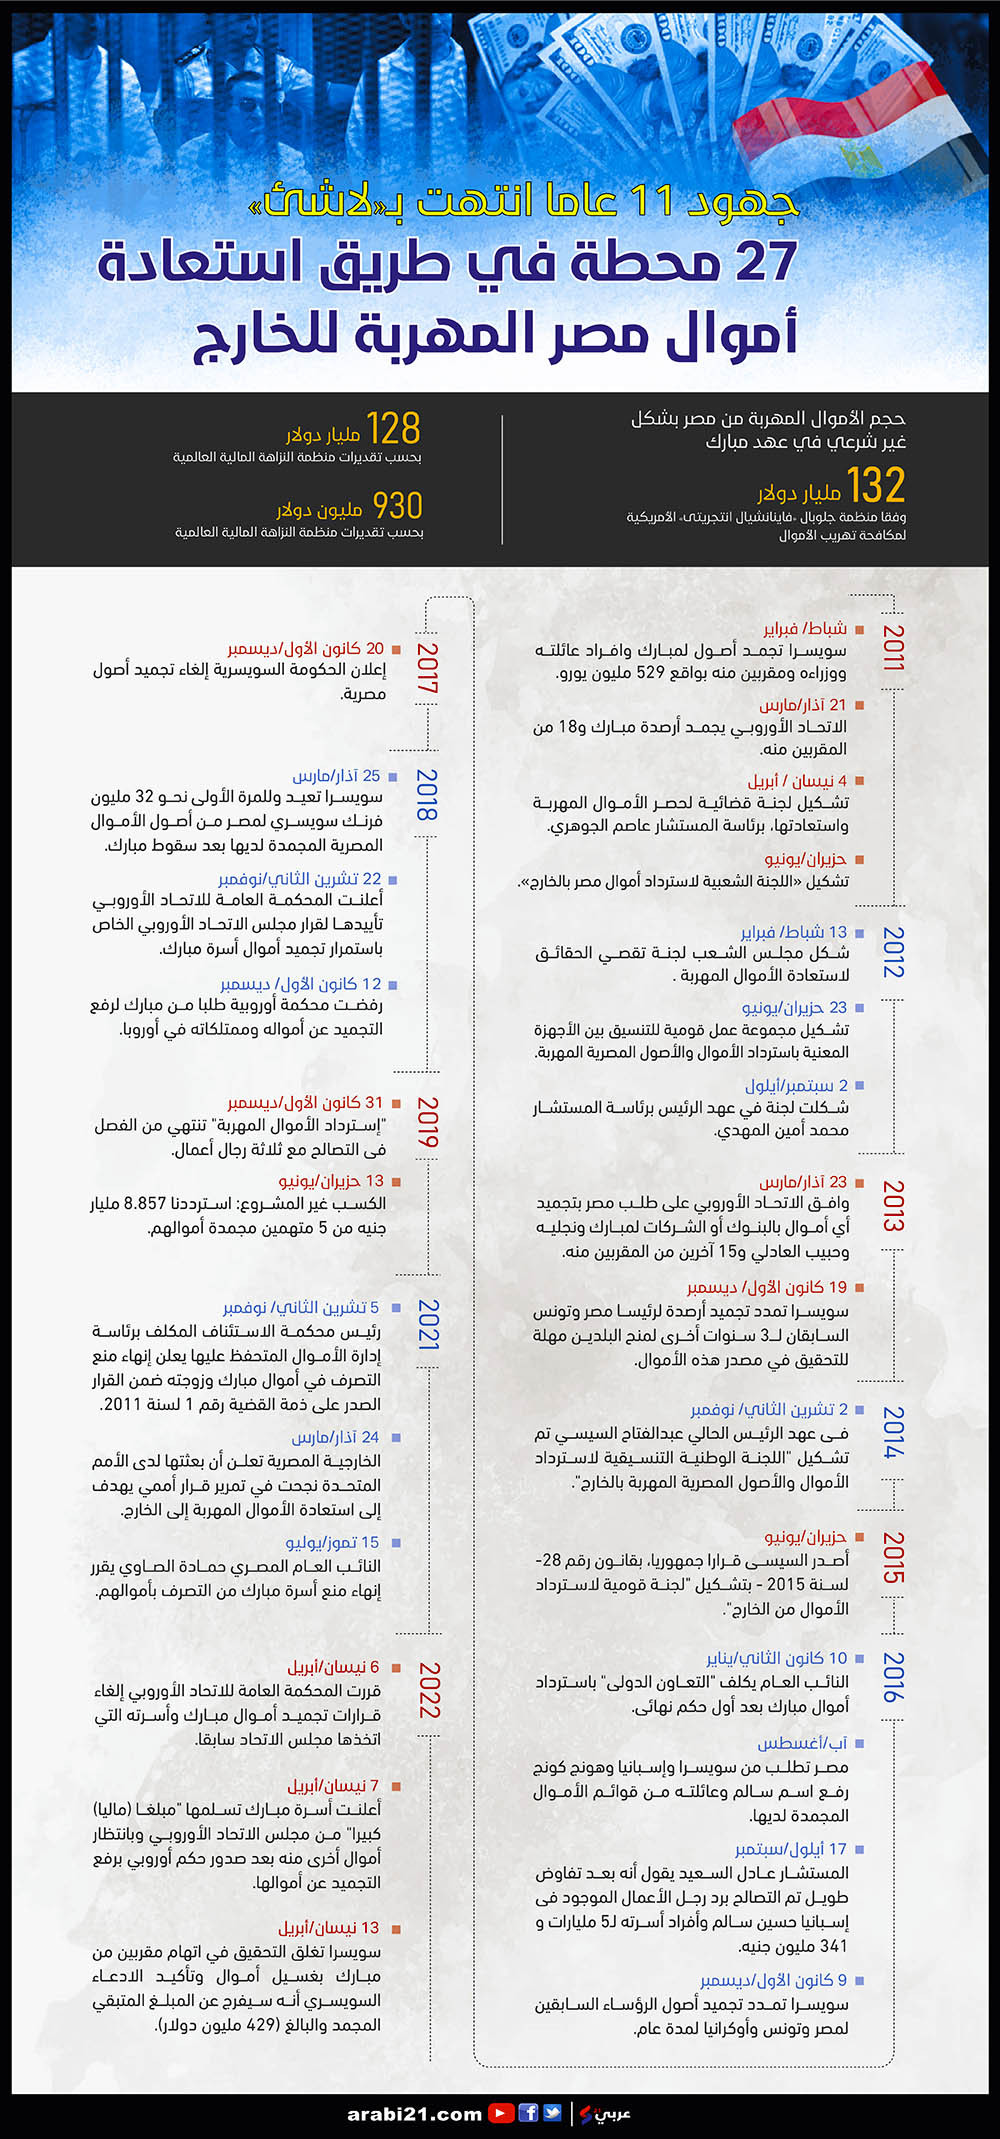 جهود 11 عاما انتهت بـ«لاشئ»
27 محطة في طريق استعادة
أموال مصر المهربة للخارج
حجم الأموال المهربة من مصر بشكل
غير شرعي في عهد مبارك
132 مليار دولار
وفقا منظمة جلوبال «فاينانشيال انتجريتى» الأمريكية
لمكافحة تهريب الأموال
128 مليار دولار
بحسب تقديرات منظمة النزاهة المالية العالمية
930 مليون دولار
بحسب تقديرات منظمة النزاهة المالية العالمية
2011
شباط/ فبراير
سويسرا تجمد أصول لمبارك وافراد عائلته
ووزراءه ومقربين منه بواقع 529 مليون يورو.
21 آذار/مارس
الاتحاد الأوروبي يجمد أرصدة مبارك و18 من
المقربين منه.
4 نيسان / أبريل
تشكيل لجنة قضائية لحصر الأموال المهربة
واستعادتها، برئاسة المستشار عاصم الجوهري.
حزيران/يونيو
تشكيل «اللجنة الشعبية لاسترداد أموال مصر بالخارج».
2012
13 شباط/ فبراير
شكل مجلس الشعب لجنة تقصي الحقائق
لاستعادة الأموال المهربة .
23 حزيران/يونيو
تشكيل مجموعة عمل قومية للتنسيق بين الأجهزة
المعنية باسترداد الأموال والأصول المصرية المهربة.
2 سبتمبر/أيلول
شكلت لجنة في عهد الرئيس برئاسة المستشار
محمد أمين المهدي.
2013
23 آذار/مارس
وافق الاتحاد الأوروبي على طلب مصر بتجميد
أي أموال بالبنوك أو الشركات لمبارك ونجليه
وحبيب العادلي و15 آخرين من المقربين منه.
19 كانون الأول/ ديسمبر
سويسرا تمدد تجميد أرصدة لرئيسا مصر وتونس
السابقان لـ3 سنوات أخرى لمنح البلدين مهلة
للتحقيق في مصدر هذه الأموال.
2014
2 تشرين الثاني/ نوفمبر
فى عهد الرئيس الحالي عبدالفتاح السيسي تم
تشكيل "اللجنة الوطنية التنسيقية لاسترداد
الأموال والأصول المصرية المهربة بالخارج".
2015
حزيران/يونيو
أصدر السيسى قرارا جمهوريا، بقانون رقم 28-
لسنة 2015 - بتشكيل "لجنة قومية لاسترداد
الأموال من الخارج".
2016
10 كانون الثاني/يناير
النائب العام يكلف "التعاون الدولى" باسترداد
أموال مبارك بعد أول حكم نهائى.
آب/أغسطس
مصر تطلب من سويسرا وإسبانيا وهونج كونج
رفع اسم سالم وعائلته من قوائم الأموال
المجمدة لديها.
17 أيلول/سبتمبر
المستشار عادل السعيد يقول أنه بعد تفاوض
طويل تم التصالح برد رجل الأعمال الموجود فى
إسبانيا حسين سالم وأفراد أسرته لـ5 مليارات و
341 مليون جنيه.
9 كانون الأول/ديسمبر
سويسرا تمدد تجميد أصول الرؤساء السابقين
لمصر وتونس وأوكرانيا لمدة عام.
2017
20 كانون الأول/ديسمبر
إعلان الحكومة السويسرية إلغاء تجميد أصول
مصرية.
2018
25 آذار/مارس
سويسرا تعيد وللمرة الأولى نحو 32 مليون
فرنك سويسري لمصر من أصول الأموال
المصرية المجمدة لديها بعد سقوط مبارك.
22 تشرين الثاني/نوفمبر
أعلنت المحكمة العامة للاتحاد الأوروبي
تأييدها لقرار مجلس الاتحاد الأوروبي الخاص
باستمرار تجميد أموال أسرة مبارك.
12 كانون الأول/ ديسمبر
رفضت محكمة أوروبية طلبا من مبارك لرفع
التجميد عن أمواله وممتلكاته في أوروبا.
2019
31 كانون الأول/ديسمبر
"إسترداد الأموال المهربة" تنتهي من الفصل
فى التصالح مع ثلاثة رجال أعمال.
13 حزيران/يونيو
الكسب غير المشروع: استرددنا 8.857 مليار
جنيه من 5 متهمين مجمدة أموالهم.
2021
5 تشرين الثاني/ نوفمبر
رئيس محكمة الاستئناف المكلف برئاسة
إدارة الأموال المتحفظ عليها يعلن إنهاء منع
التصرف في أموال مبارك وزوجته ضمن القرار
الصدر على ذمة القضية رقم 1 لسنة 2011.
24 آذار/مارس
الخارجية المصرية تعلن أن بعثتها لدى الأمم
المتحدة نجحت في تمرير قرار أممي يهدف
إلى استعادة الأموال المهربة إلى الخارج.
15 تموز/يوليو
النائب العام المصري حمادة الصاوي يقرر
إنهاء منع أسرة مبارك من التصرف بأموالهم.
2022
6 نيسان/أبريل
قررت المحكمة العامة للاتحاد الأوروبي إلغاء
قرارات تجميد أموال مبارك وأسرته التي
اتخذها مجلس الاتحاد سابقا.
7 نيسان/أبريل
أعلنت أسرة مبارك تسلمها "مبلغا (ماليا)
كبيرا" من مجلس الاتحاد الأوروبي وبانتظار
أموال أخرى منه بعد صدور حكم أوروبي برفع
التجميد عن أموالها.
13 نيسان/أبريل
سويسرا تغلق التحقيق في اتهام مقربين من
مبارك بغسيل أموال وتأكيد الادعاء
السويسري أنه سيفرج عن المبلغ المتبقي
المجمد والبالغ (429 مليون دولار).
عربي21
arabi21.com